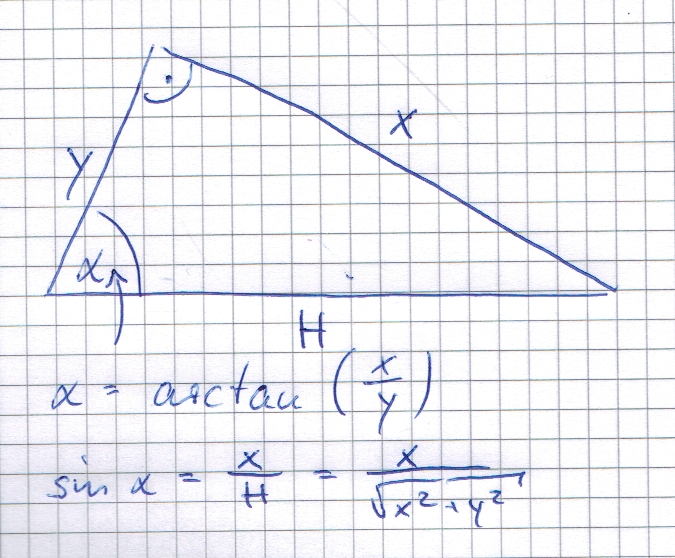 y
x
α
H
α = arctan (x/y)
sin α = x/H = x/√(x² + y²)